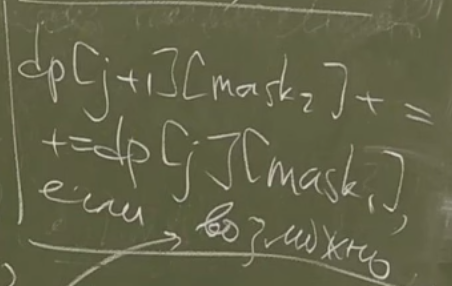 dp[j+1][mask₂] +=
+= dp[j][mask₁],
если возможно